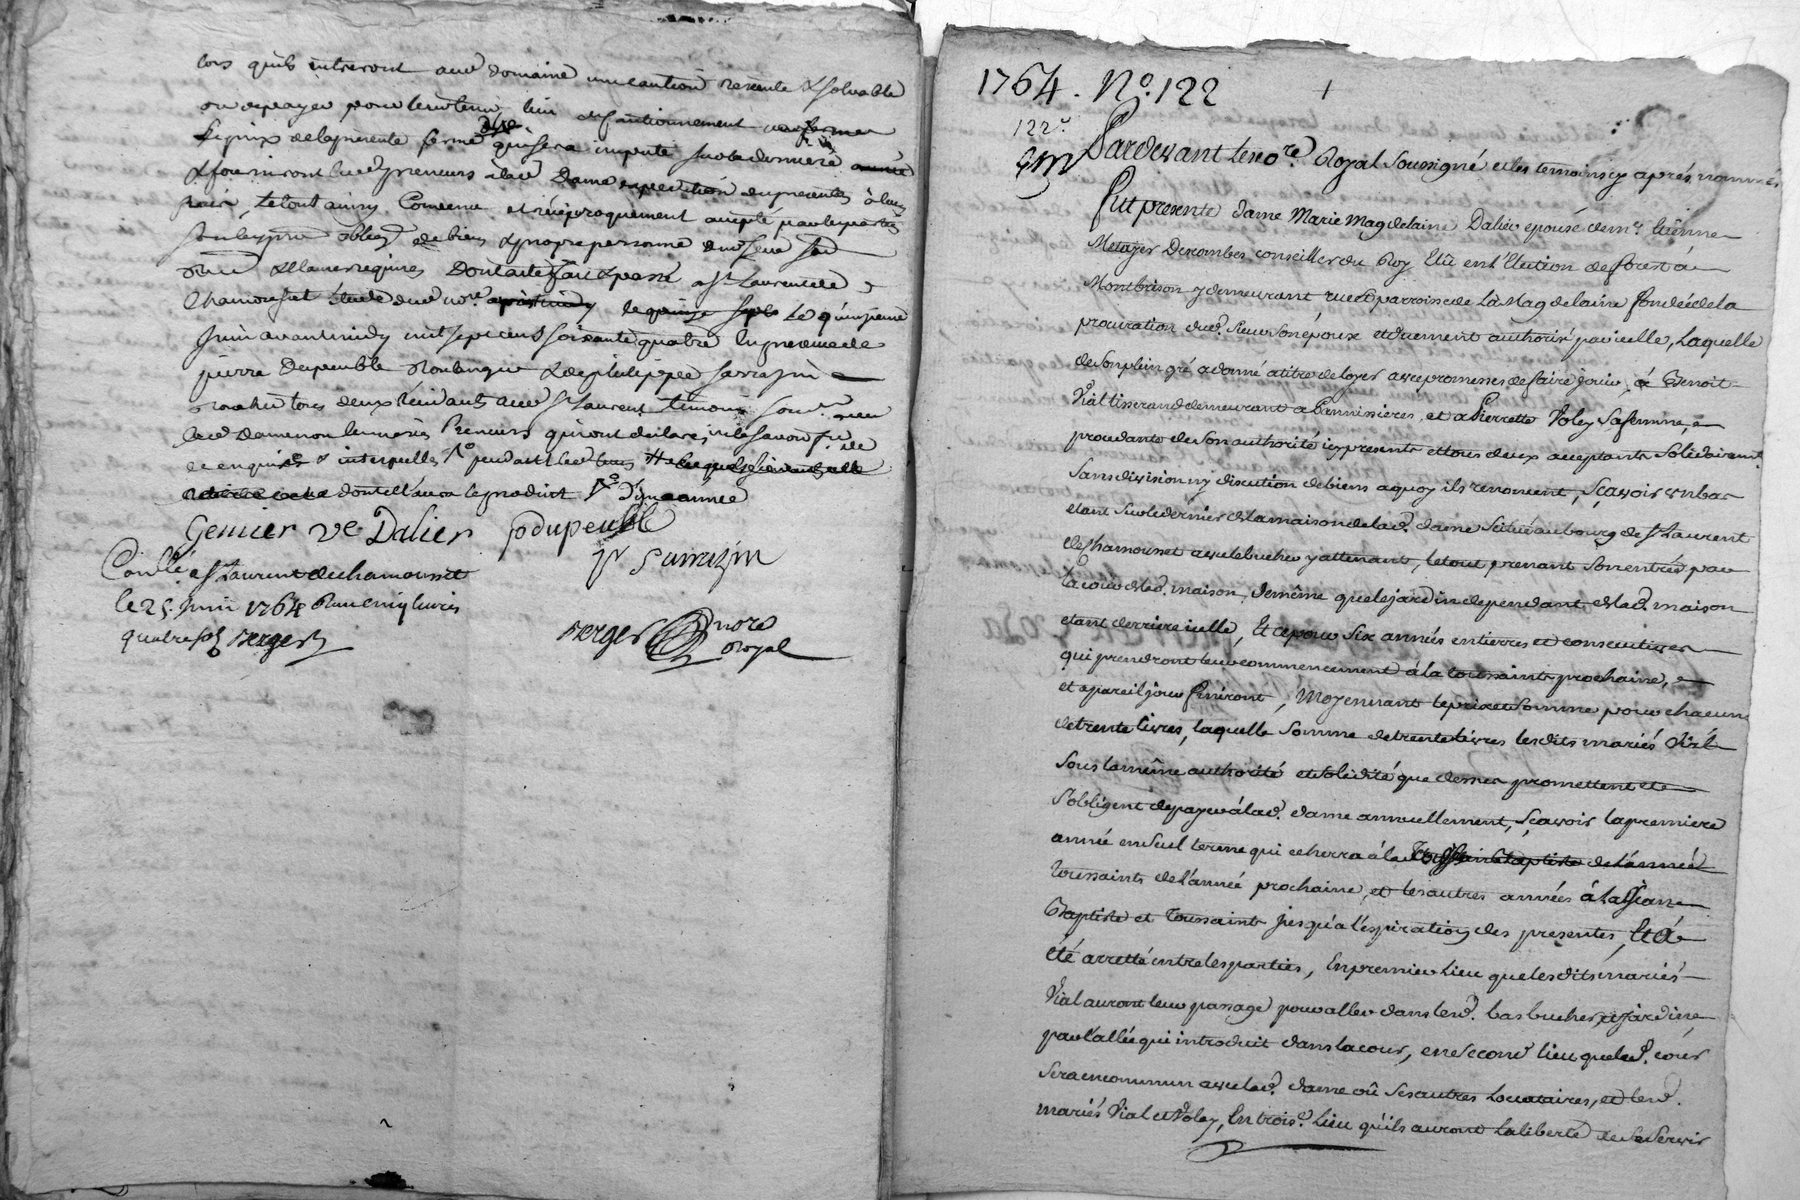 lors quils entreront aud domaine une caution resseante & solvable
ou de payer pour leur tenir lieu de cautionnement
le prix de la presente ferme qui sera imputé sur la derniere année
& fourniront lesd preneurs alad Dame expedition du presentes à leurs
frais, le tout ainsy Convenu et reciproquement accepté par les parties
sous leurs obligs de biens & propre personne dud
& clauses requises Dont acte fait & passé a St Laurent de
Chamousset étude dud nore le quinzieme
Juin avant midy mil sept cent soixante quatre En presence de
pierre Dupeuble Boulanger & de philippe Sarrazin
tous deux residants aud St Laurent temoins sousnes avec
lad dame non lesd mariés Preneurs qui ont declaré ne le savoir fe
de ce enquis & interpellés
dont elle aura le produit d'une année
Genier Ve Dalier pdupeuble
p Sarrazin
Conllé a St Laurent de chamousset
le 25 Juin 1764 Reçu cinq livres
quatre sols Berger
Berger nore
Royal
1764. No. 122
1
122e
Pardevant le nore. Royal Soussigné et les temoins cy après nommés
Fut presente Dame Marie Magdelaine Dalier epouse de mre Etienne
Metayer Descombes conseiller du Roy Elû en l'Election de forest à
Montbrison y demeurant rue et parroisse de La Magdelaine fondée de la
procuration dud. Sieur son époux et duement authorisée par icelle, Laquelle
de son plein gré a donné a titre de loyer avec promesse de faire jouir, à Benoit
Vial tisserand demeurant a Pannissieres, et a Pierrette Voley sa femme,
procedante de son authorité icy presents et tous deux acceptants solidairemt.
Sans division ny discution de biens a quoy ils renoncent, Scavoir un bas
étant sur le dernier de la maison de lad. dame situé au bourg de St Laurent
de Chamousset avec le bucher y attenant, le tout prenant son entrée par
la cour de lad. maison, de même que le jardin dependant de lad. maison
étant derriere icelle, Et ce pour six années entieres et consecutives
qui prendront leur commencement à la toussaints prochaine,
et a pareil jour finiront, Moyennant le prix et somme pour chacune
de trente livres, laquelle somme de trente livres lesdits mariés Vial
Sous la même authorité et solidité que dessus promettent et
S'obligent de payer à lad. dame annuellement, Scavoir la premiere
année en Seul terme qui echerra à la de l'année
toussaints de l'année prochaine, et les autres années à la St Jean
Baptiste et Toussaints jusqu'à l'expiration des presentes, Et a
été arretté entre les parties, En premier Lieu que lesdits mariés
Vial auront leur passage pour aller dans lesd. bas bucher, et jardin
par l'allée qui introduit dans la cour, en Second lieu que lad. cour
Sera en commun avec lad. dame où Ses autres Locataires, et lesd.
mariés Vial et Voley, En trois.e Lieu qu'ils auront la liberté de se Servir